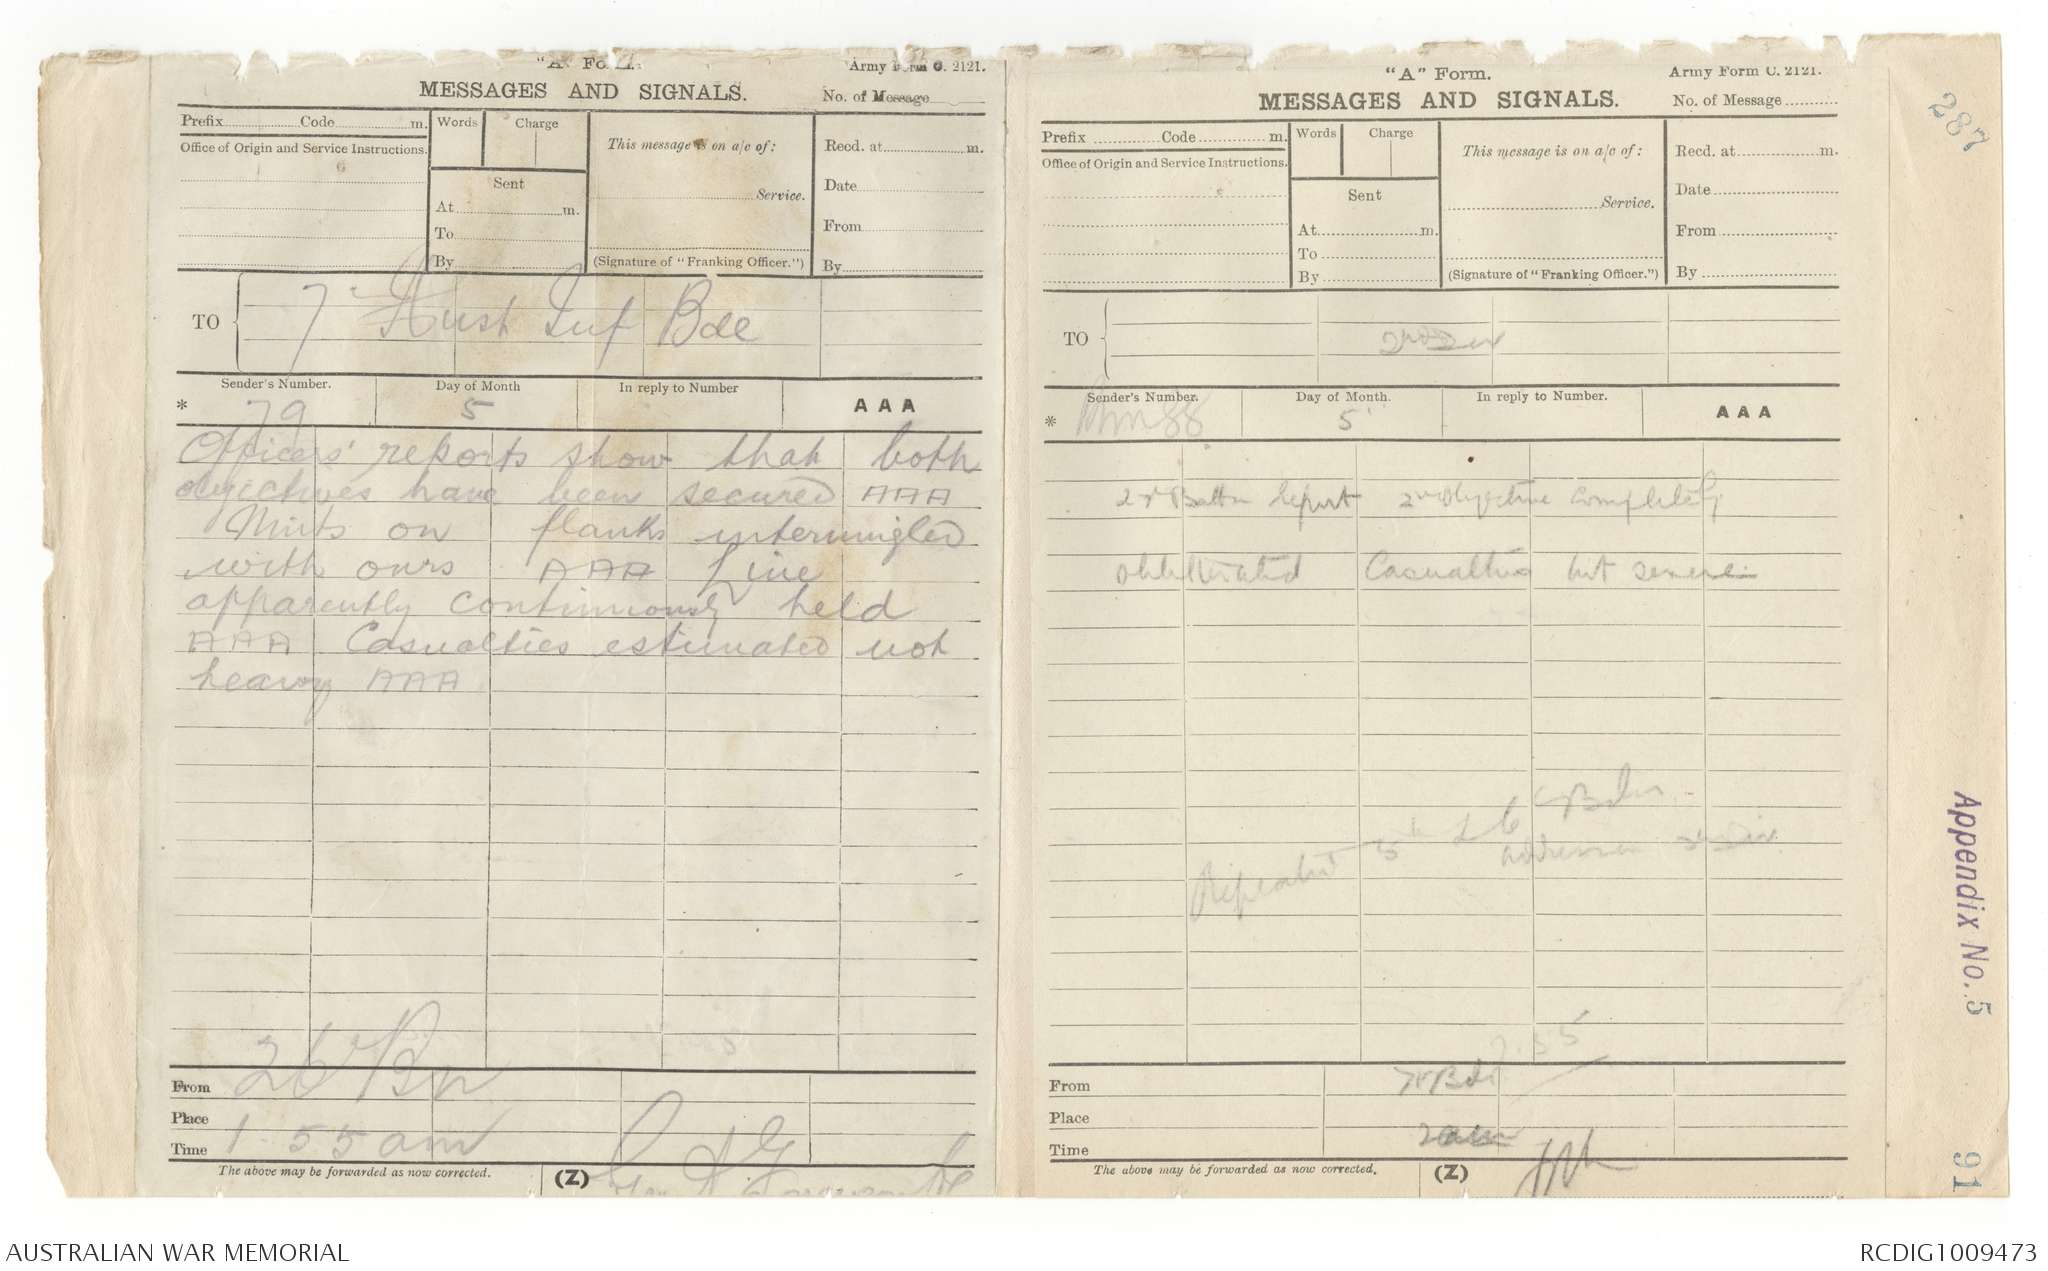 "A" Form.
Army Form C. 2121.
MESSAGES AND SIGNALS.
No. of Message
Prefix Code m.
Words
Charge
This message is on a/c of:
Recd. at m.
Office of Origin and Service Instructions.
Sent
Date
At m.
Service.
To
From
By
(Signature of "Franking Officer.")
By
TO
7 Aust Inf Bde
Sender's Number.
Day of Month
In reply to Number
AAA
*
79
5
Officers' reports show that both
objectives have been secured AAA
Units on flanks intermingled
with ours AAA Line
apparently continuously held
AAA Casualties estimated not
heavy AAA
From
26 Bn
Place
Time
1.55 am
The above may be forwarded as now corrected.
(Z)
"A" Form.
Army Form C. 2121.
MESSAGES AND SIGNALS.
No. of Message
Prefix Code m.
Words
Charge
This message is on a/c of:
Recd. at m.
Office of Origin and Service Instructions.
Sent
Date
At m.
Service.
To
From
By
(Signature of "Franking Officer.")
By
TO
2nd Div
Sender's Number.
Day of Month.
In reply to Number
AAA
*
5
Battn report 2nd objective completely
obliterated Casualties not severe
Repeated 5th
2 Div
7.55
From
7 Bde
Place
Time
The above may be forwarded as now corrected.
(Z)
287
Appendix No. 5
91
AUSTRALIAN WAR MEMORIAL
RCDIG1009473